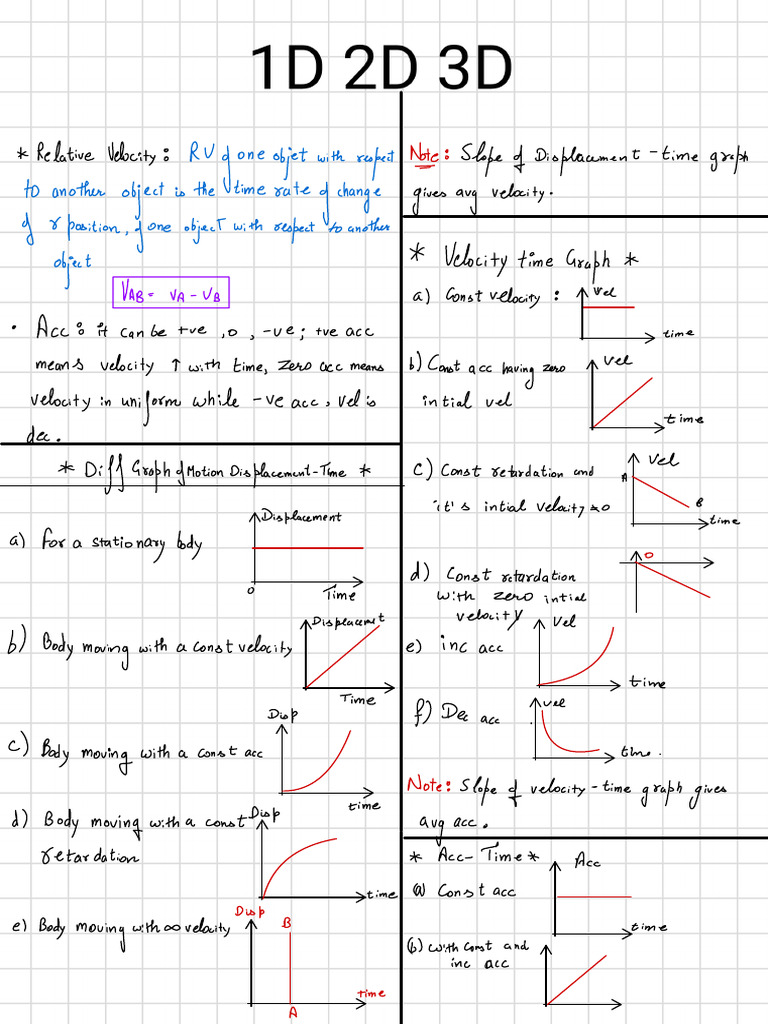 1D 2D 3D
* Relative Velocity: RV of one objet with respect
to another object is the time rate of change
of r position, of one object with respect to another
object
VAB = VA - VB
• Acc: it can be +ve, 0, -ve; +ve acc
means velocity ↑ with time, zero acc means
velocity in uniform while -ve acc, vel is
dec.
* Diff Graph of Motion Displacement-Time *
a) For a stationary body
Displacement
0
Time
b) Body moving with a const velocity
Displacemet
Time
c) Body moving with a const acc
Disp
time
d) Body moving with a const
retardation
Disp
time
e) Body moving with ∞ velocity
Disp
B
A
time
Note: Slope of Displacement-time graph
gives avg velocity.
* Velocity time Graph *
a) Const velocity:
Vel
time
b) Const acc having zero
intial vel
Vel
time
c) Const retardation and
it's intial velocity ≠ 0
Vel
A
B
time
d) Const retardation
with zero intial
velocity
0
e) inc acc
Vel
time
f) Dec acc
Vel
time.
Note: Slope of velocity-time graph gives
avg acc.
* Acc-Time *
a) Const acc
Acc
time
(b) with const and
inc acc